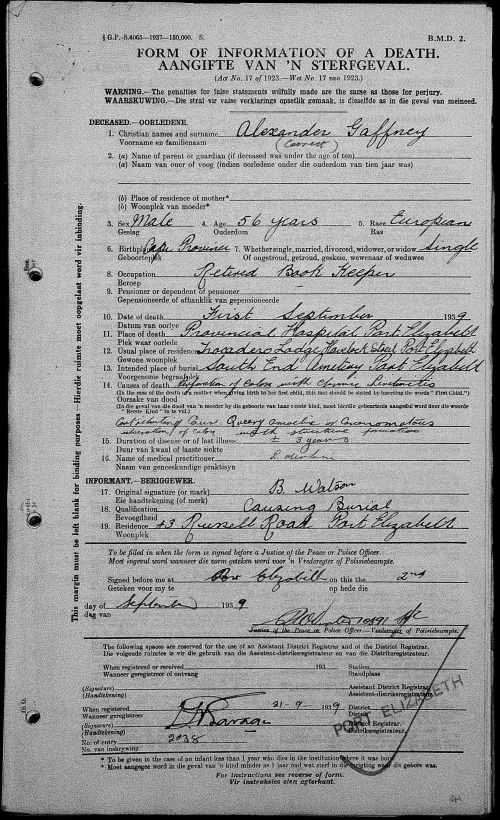 § G.P.-S.4065—1937—150,000. S.
B.M.D. 2.
FORM OF INFORMATION OF A DEATH.
AANGIFTE VAN 'N STERFGEVAL.
(Act No. 17 of 1923.—Wet No. 17 van 1923.)
WARNING.—The penalties for false statements wilfully made are the same as those for perjury.
WAARSKUWING.—Die straf vir valse verklarings opsetlik gemaak, is dieselfde as in die geval van meineed.
DECEASED.—OORLEDENE.
1. Christian names and surname Alexander Gaffney
Voorname en familienaam (Correct)
2. (a) Name of parent or guardian (if deceased was under the age of ten)
(a) Naam van ouer of voog (indien oorledene onder die ouderdom van tien jaar was)
(b) Place of residence of mother*
(b) Woonplek van moeder*
3. Sex Male 4. Age 56 years 5. Race European
Geslag Ouderdom Ras
6. Birthplace Cape Province 7. Whether single, married, divorced, widower, or widow Single
Geboorteplek Of ongetroud, getroud, geskeie, wewenaar of weduwee
8. Occupation Retired Book Keeper
Beroep
9. Pensioner or dependant of pensioner
Gepensioneerde of afhanklik van gepensioneerde
10. Date of death First September 1939
Datum van oorlye
11. Place of death Provincial Hospital Port Elizabeth
Plek waar oorlede
12. Usual place of residence Trocadero Lodge Havelock Street Port Elizabeth
Gewone woonplek
13. Intended place of burial South End Cemetery Port Elizabeth
Voorgenome begraafplek
14. Causes of death Perforation of Colon with
Oorsake van dood
15. Duration of disease or of last illness ± 3 years
Duur van kwaal of laaste siekte
16. Name of medical practitioner
Naam van geneeskundige praktisyn
INFORMANT.—BERIGGEWER.
17. Original signature (or mark) B. Watson
Eie handtekening (of merk)
18. Qualification Causing Burial
Bevoegdheid
19. Residence 43 Russell Road Port Elizabeth
Woonplek
This margin must be left blank for binding purposes — Hierdie ruimte moet oopgelaat word vir inbinding.
To be filled in when the form is signed before a Justice of the Peace or Police Officer.
Moet ingevul word wanneer die vorm geteken word voor 'n Vrederegter of Polisiebeampte.
Signed before me at Port Elizabeth on this the 2nd
Geteken voor my te op hede die
day of September 1939
dag van
Justice of the Peace or Police Officer.—Vrederegter of Polisiebeampte.
The following spaces are reserved for the use of an Assistant District Registrar and of the District Registrar.
Die volgende ruimtes is vir die gebruik van die Assistent-distriksregistrateur en van die Distriksregistrateur.
When registered or received 193 Station
Wanneer geregistreer of ontvang Standplaas
(Signature) Assistant District Registrar.
(Handtekening) Assistent-distriksregistrateur.
When registered 21-9-1939 District
Wanneer geregistreer Distrik
(Signature) District Registrar.
(Handtekening) Distriksregistrateur.
PORT ELIZABETH
No. of entry 2038
No. van inskrywing
* To be given in the case of an infant less than 1 year who dies in the institution where it was born.
* Moet aangegee word in die geval van 'n kind minder as 1 jaar oud wat sterf in die inrigting waar dit gebore was.
For instructions see reverse of form.
Vir instruksies sien agterkant.